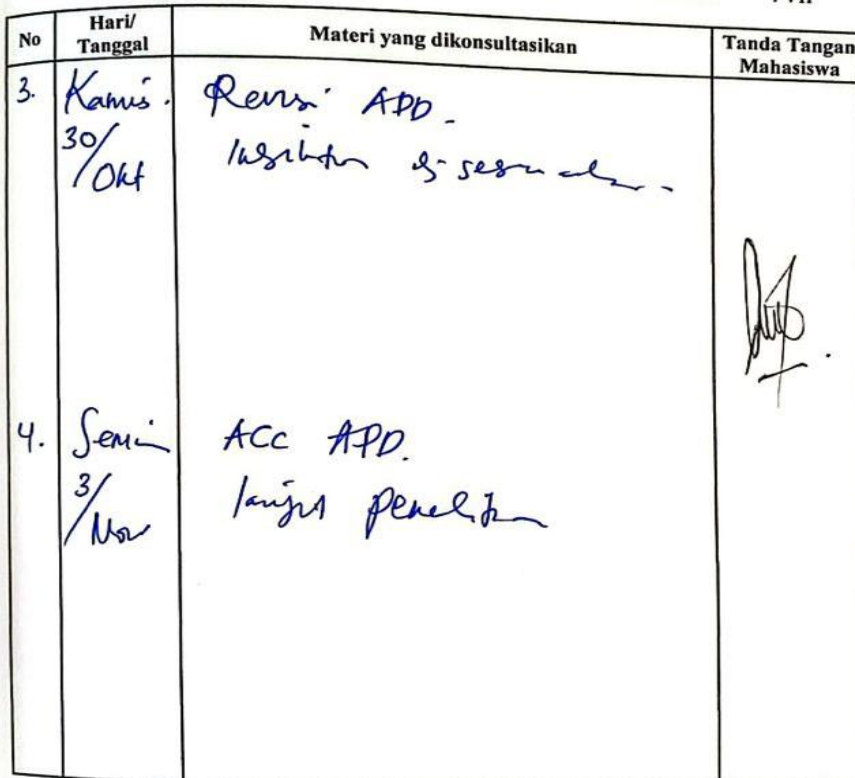 No
Hari/
Tanggal
Materi yang dikonsultasikan
Tanda Tangan
Mahasiswa
3.
Kamis.
Revisi APD.
30/
Okt
4.
Senin
ACC APD.
3/
Nov
lanjut penelitian